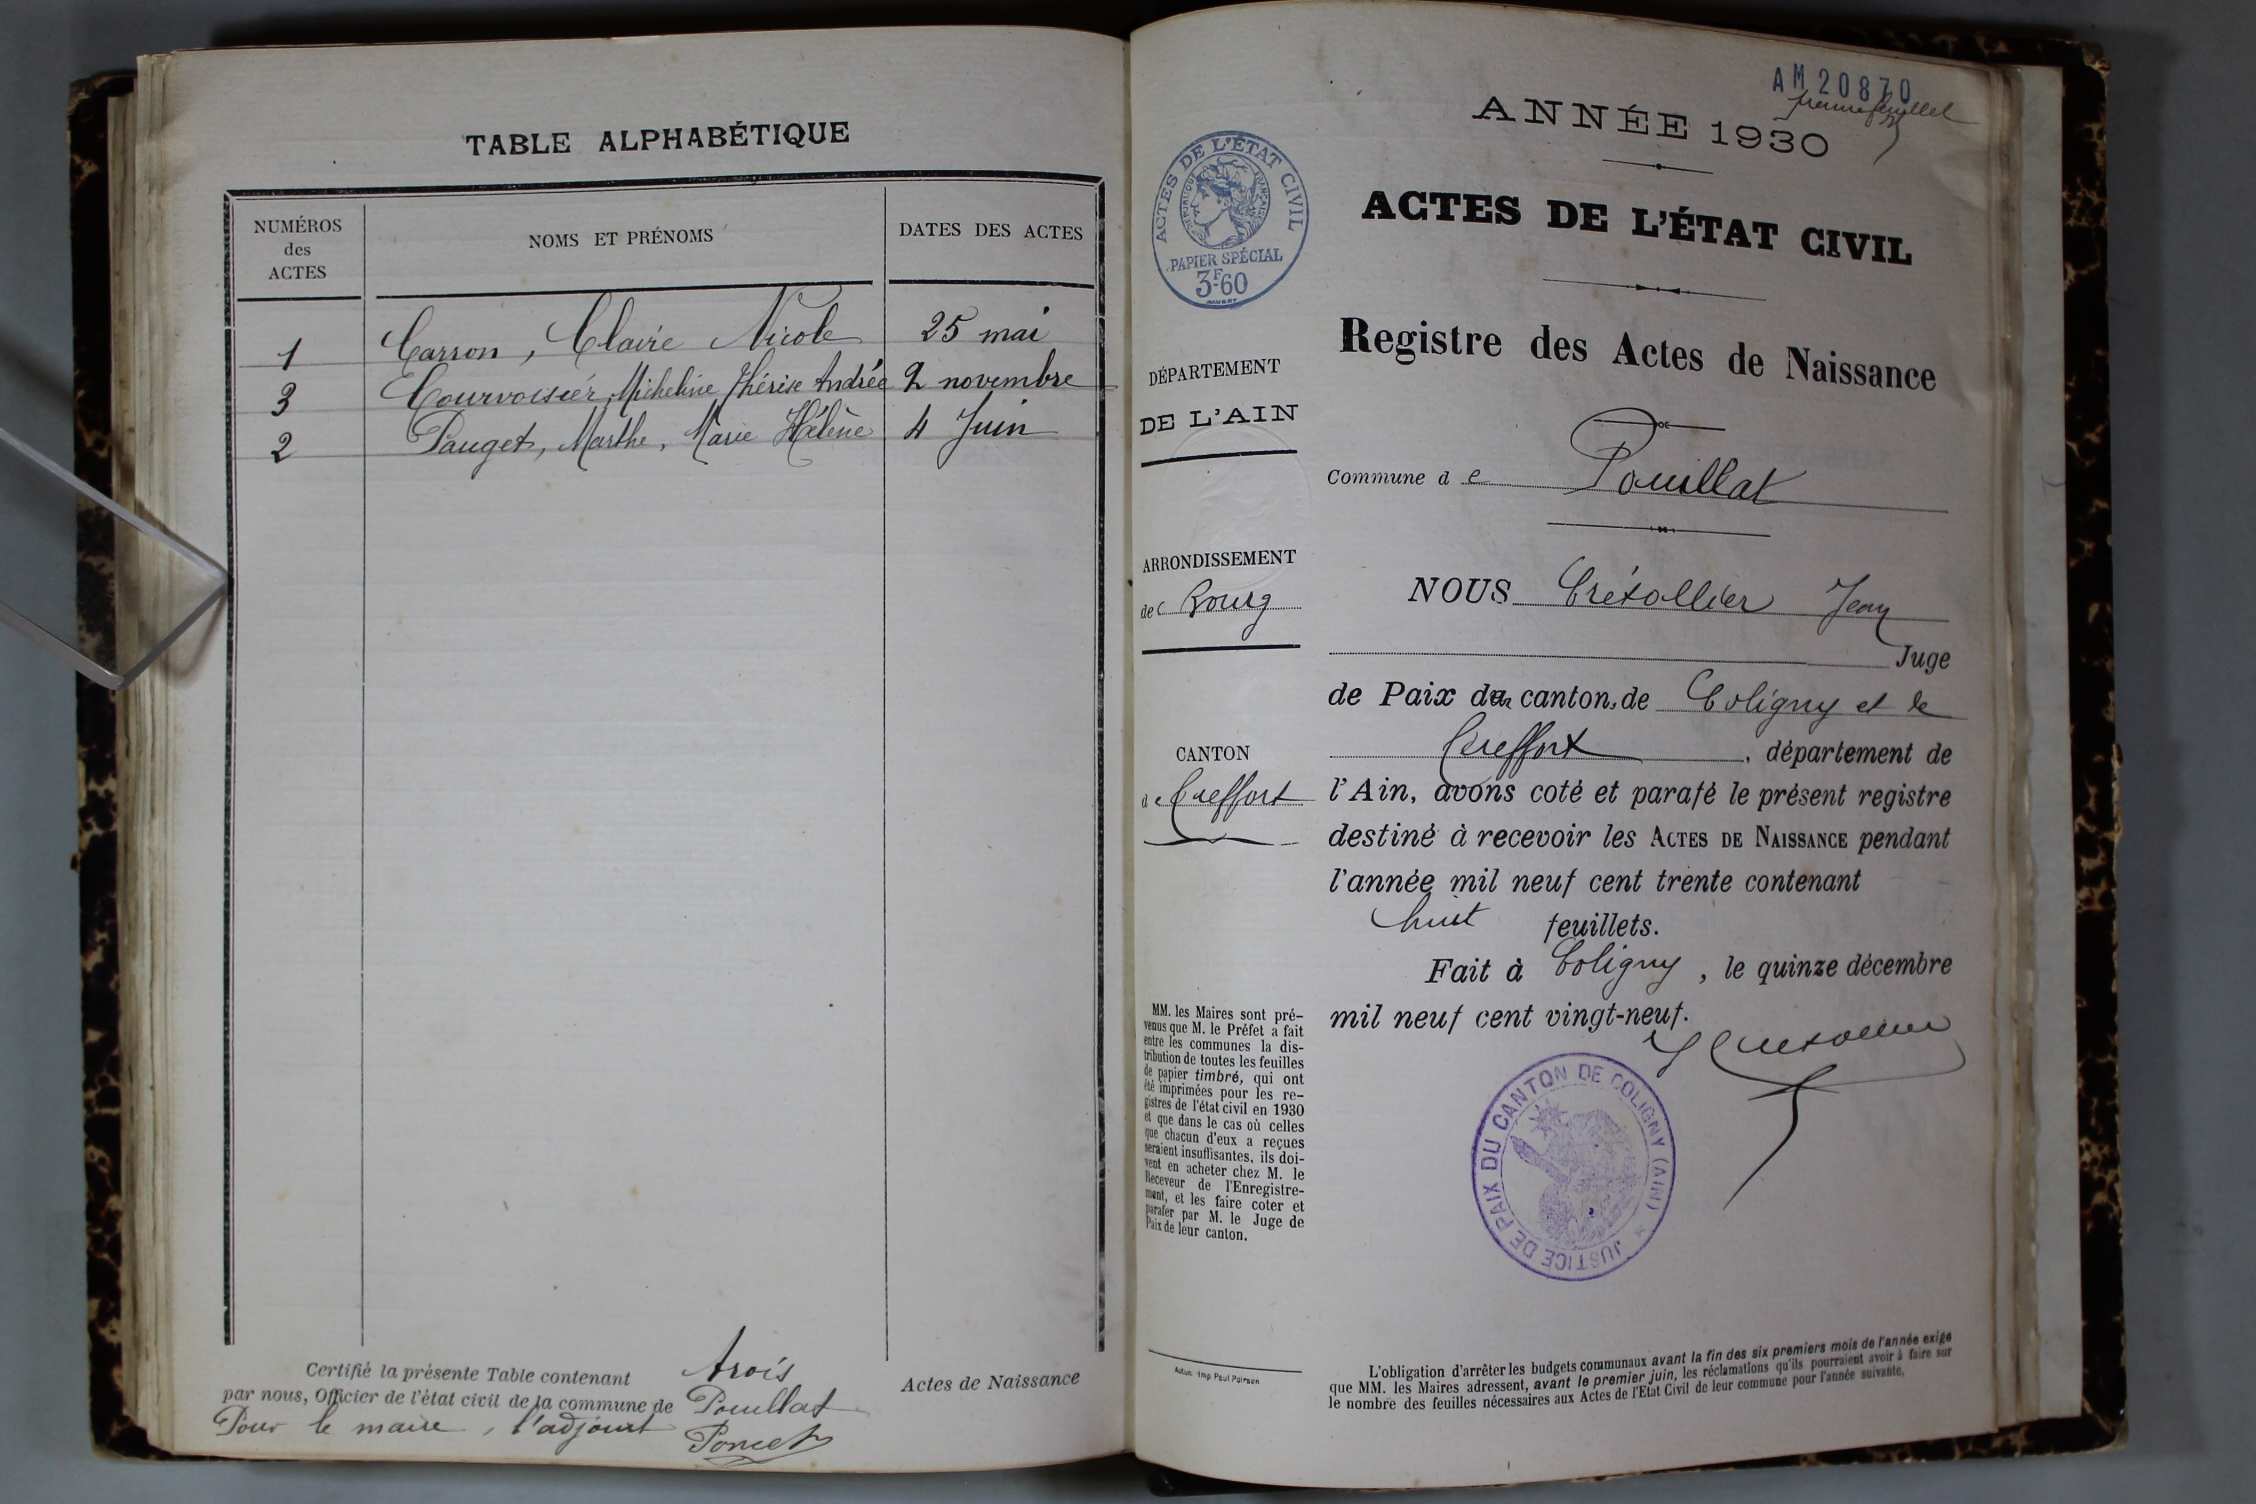 TABLE ALPHABÉTIQUE
NUMÉROS
des
ACTES
NOMS ET PRÉNOMS
DATES DES ACTES
1 Carron, Claire Nicole 25 mai
3 Courvoisier, Micheline Thérèse Andrée 2 novembre
2 Pauget, Marthe, Marie Hélène 4 Juin
Certifié la présente Table contenant trois Actes de Naissance
par nous, Officier de l'état civil de la commune de Pouillat
Pour le maire, l'adjoint
Poncet
AM20870
premier feuillet
ANNÉE 1930
ACTES DE L'ÉTAT CIVIL
RÉPUBLIQUE FRANÇAISE
PAPIER SPÉCIAL
3F60
ACTES DE L'ÉTAT CIVIL
Registre des Actes de Naissance
DÉPARTEMENT
DE L'AIN
Commune de Pouillat
ARRONDISSEMENT
de Bourg
CANTON
de Treffort
NOUS Trésollier Jean
Juge
de Paix des cantons de Coligny et de
Treffort, département de
l'Ain, avons coté et parafé le présent registre
destiné à recevoir les ACTES DE NAISSANCE pendant
l'année mil neuf cent trente contenant
huit feuillets.
Fait à Coligny, le quinze décembre
mil neuf cent vingt-neuf.
JUSTICE DE PAIX DU CANTON DE COLIGNY (AIN)
MM. les Maires sont pré-
venus que M. le Préfet a fait
entre les communes la dis-
tribution de toutes les feuilles
de papier timbré, qui ont
été imprimées pour les re-
gistres de l'état civil en 1930
et que dans le cas où celles
que chacun d'eux a reçues
seraient insuffisantes, ils doi-
vent en acheter chez M. le
Receveur de l'Enregistre-
ment, et les faire coter et
parafer par M. le Juge de
Paix de leur canton.
Imp Paul Poirson
L'obligation d'arrêter les budgets communaux avant la fin des six premiers mois de l'année exige
que MM. les Maires adressent, avant le premier juin, les réclamations qu'ils pourraient avoir à faire sur
le nombre des feuilles nécessaires aux Actes de l'Etat Civil de leur commune pour l'année suivante.